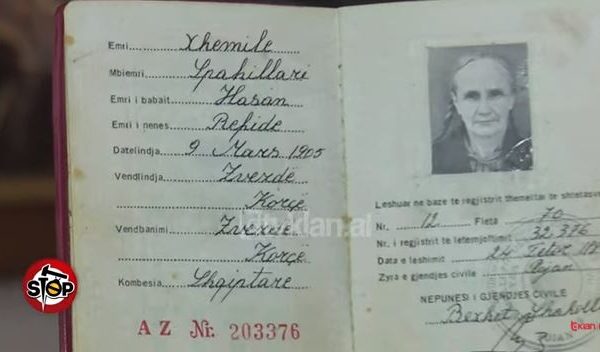 Emri Xhemile
Mbiemri Spahillari
Emri i babait Hasan
Emri i nenes Refide
Datelindja 9 Mars 1905
Vendlindja Zvezdë
Korçë
Vendbanimi Zvezdë
Korçë
Kombesia Shqiptare
A Z Nr. 203376
Leshuar ne baze te regjistrit themeltar te shtetasve
Nr. 12 Fleta 70
Nr. i regjistrit te leternjoftimit 32.376
Data e leshimit 24 Tetor
Zyra e gjendjes civile
NEPUNESI I GJENDJES CIVILE
STOP